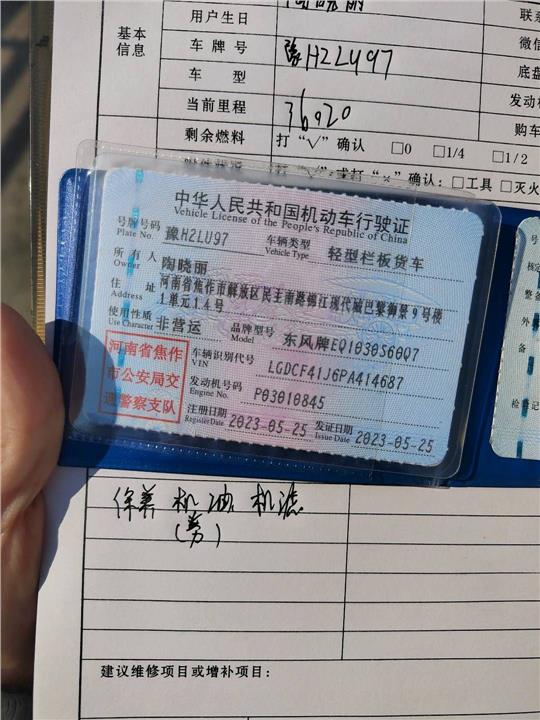 基本信息
用户生日
车牌号 豫H2LU97
微信
车型
底盘
当前里程 36920
发动机
剩余燃料 打“√”确认 □0 □1/4 □1/2
购车
确认：□工具 □灭火
中华人民共和国机动车行驶证
Vehicle License of the People's Republic of China
号牌号码 Plate No. 豫H2LU97 车辆类型 Vehicle Type 轻型栏板货车
所有人 Owner 陶晓丽
住址 Address 河南省焦作市解放区民主南路锦江现代城巴黎御景9号楼
1单元14号
使用性质 Use Character 非营运 品牌型号 Model 东风牌EQ1030S60Q7
河南省焦作
市公安局交
通警察支队
车辆识别代号 VIN LGDCF41J6PA414687
发动机号码 Engine No. P03010845
注册日期 Register Date 2023-05-25 发证日期 Issue Date 2023-05-25
保养 机油 机滤
建议维修项目或增补项目：